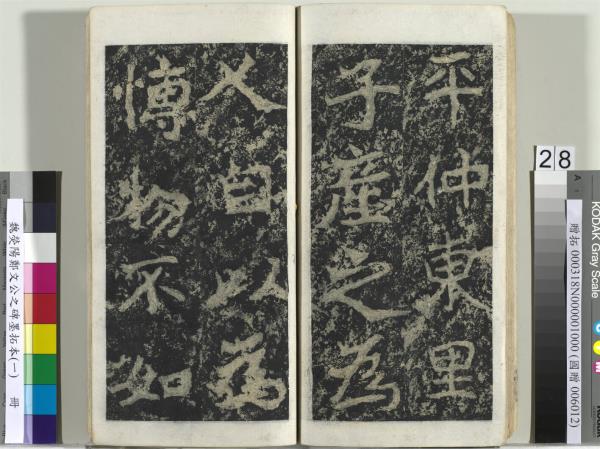 平仲東里
子產之為
人自以為
博物不如
28
贈拓 000318N000001000 (國贈 006012)
魏滎陽鄭文公之碑墨拓本(一) 冊
KODAK Gray Scale
A